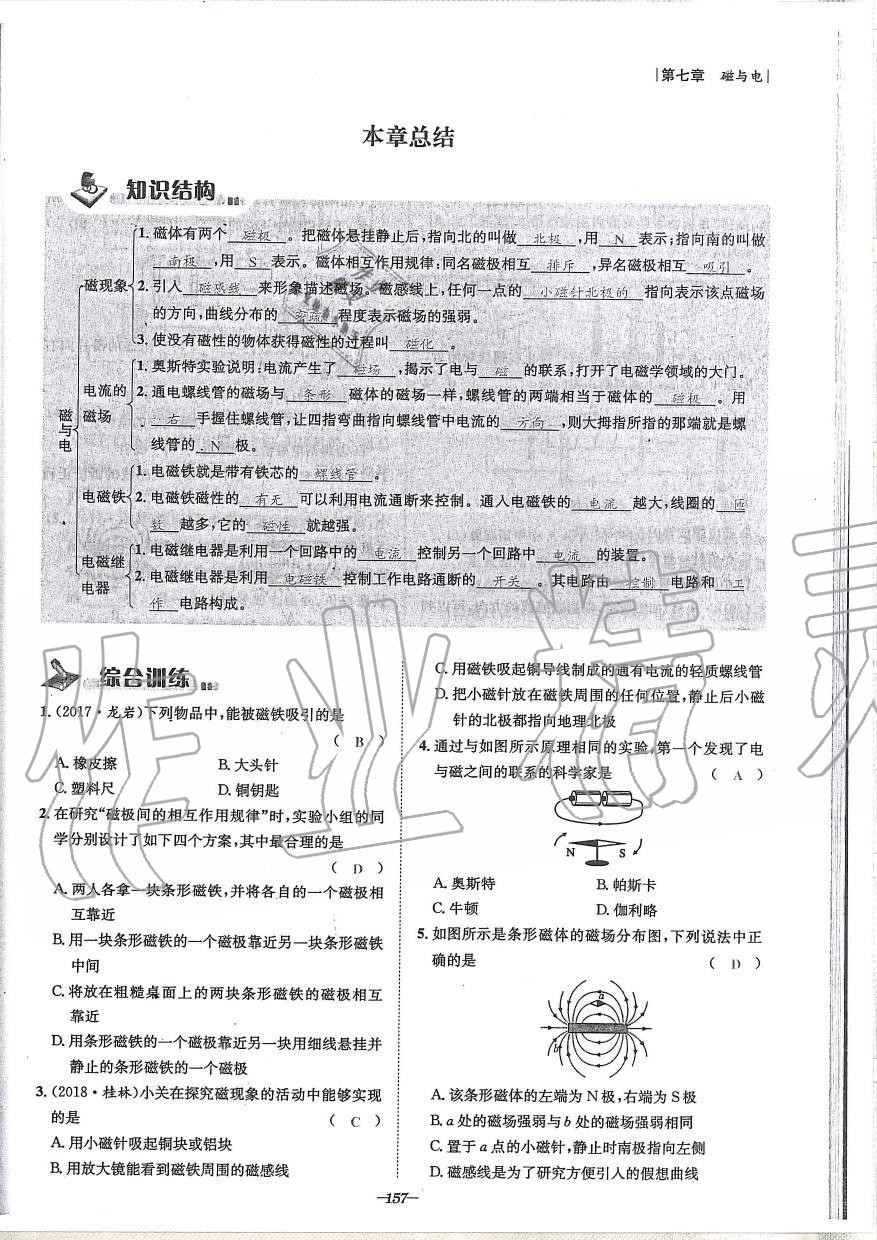 第七章 磁与电
本章总结
知识结构
磁与电
磁现象
1. 磁体有两个 磁极 。把磁体悬挂静止后,指向北的叫做 北极 ,用 N 表示;指向南的叫做
南极 ,用 S 表示。磁体相互作用规律:同名磁极相互 排斥 ,异名磁极相互 吸引 。
2. 引入 磁感线 来形象描述磁场。磁感线上,任何一点的 小磁针北极的 指向表示该点磁场
的方向,曲线分布的 密疏 程度表示磁场的强弱。
3. 使没有磁性的物体获得磁性的过程叫 磁化 。
电流的
磁场
1. 奥斯特实验说明:电流产生了 磁场 ,揭示了电与 磁 的联系,打开了电磁学领域的大门。
2. 通电螺线管的磁场与 条形 磁体的磁场一样,螺线管的两端相当于磁体的 磁极 。用
右 手握住螺线管,让四指弯曲指向螺线管中电流的 方向 ,则大拇指所指的那端就是螺
线管的 N 极。
电磁铁
1. 电磁铁就是带有铁芯的 螺线管 。
2. 电磁铁磁性的 有无 可以利用电流通断来控制。通入电磁铁的 电流 越大,线圈的 匝
数 越多,它的 磁性 就越强。
电磁继
电器
1. 电磁继电器是利用一个回路中的 电流 控制另一个回路中 电流 的装置。
2. 电磁继电器是利用 电磁铁 控制工作电路通断的 开关 。其电路由 控制 电路和 工
作 电路构成。
综合训练
1. (2017·龙岩)下列物品中,能被磁铁吸引的是
( B )
A. 橡皮擦 B. 大头针
C. 塑料尺 D. 铜钥匙
2. 在研究“磁极间的相互作用规律”时,实验小组的同
学分别设计了如下四个方案,其中最合理的是
( D )
A. 两人各拿一块条形磁铁,并将各自的一个磁极相
互靠近
B. 用一块条形磁铁的一个磁极靠近另一块条形磁铁
中间
C. 将放在粗糙桌面上的两块条形磁铁的磁极相互
靠近
D. 用条形磁铁的一个磁极靠近另一块用细线悬挂并
静止的条形磁铁的一个磁极
3. (2018·桂林)小关在探究磁现象的活动中能够实现
的是 ( C )
A. 用小磁针吸起铜块或铝块
B. 用放大镜能看到磁铁周围的磁感线
C. 用磁铁吸起铜导线制成的通有电流的轻质螺线管
D. 把小磁针放在磁铁周围的任何位置,静止后小磁
针的北极都指向地理北极
4. 通过与如图所示原理相同的实验,第一个发现了电
与磁之间的联系的科学家是 ( A )
N S
A. 奥斯特 B. 帕斯卡
C. 牛顿 D. 伽利略
5. 如图所示是条形磁体的磁场分布图,下列说法中正
确的是 ( D )
a
b
A. 该条形磁体的左端为N极,右端为S极
B. a处的磁场强弱与b处的磁场强弱相同
C. 置于a点的小磁针,静止时南极指向左侧
D. 磁感线是为了研究方便引入的假想曲线
-157-
作业精灵